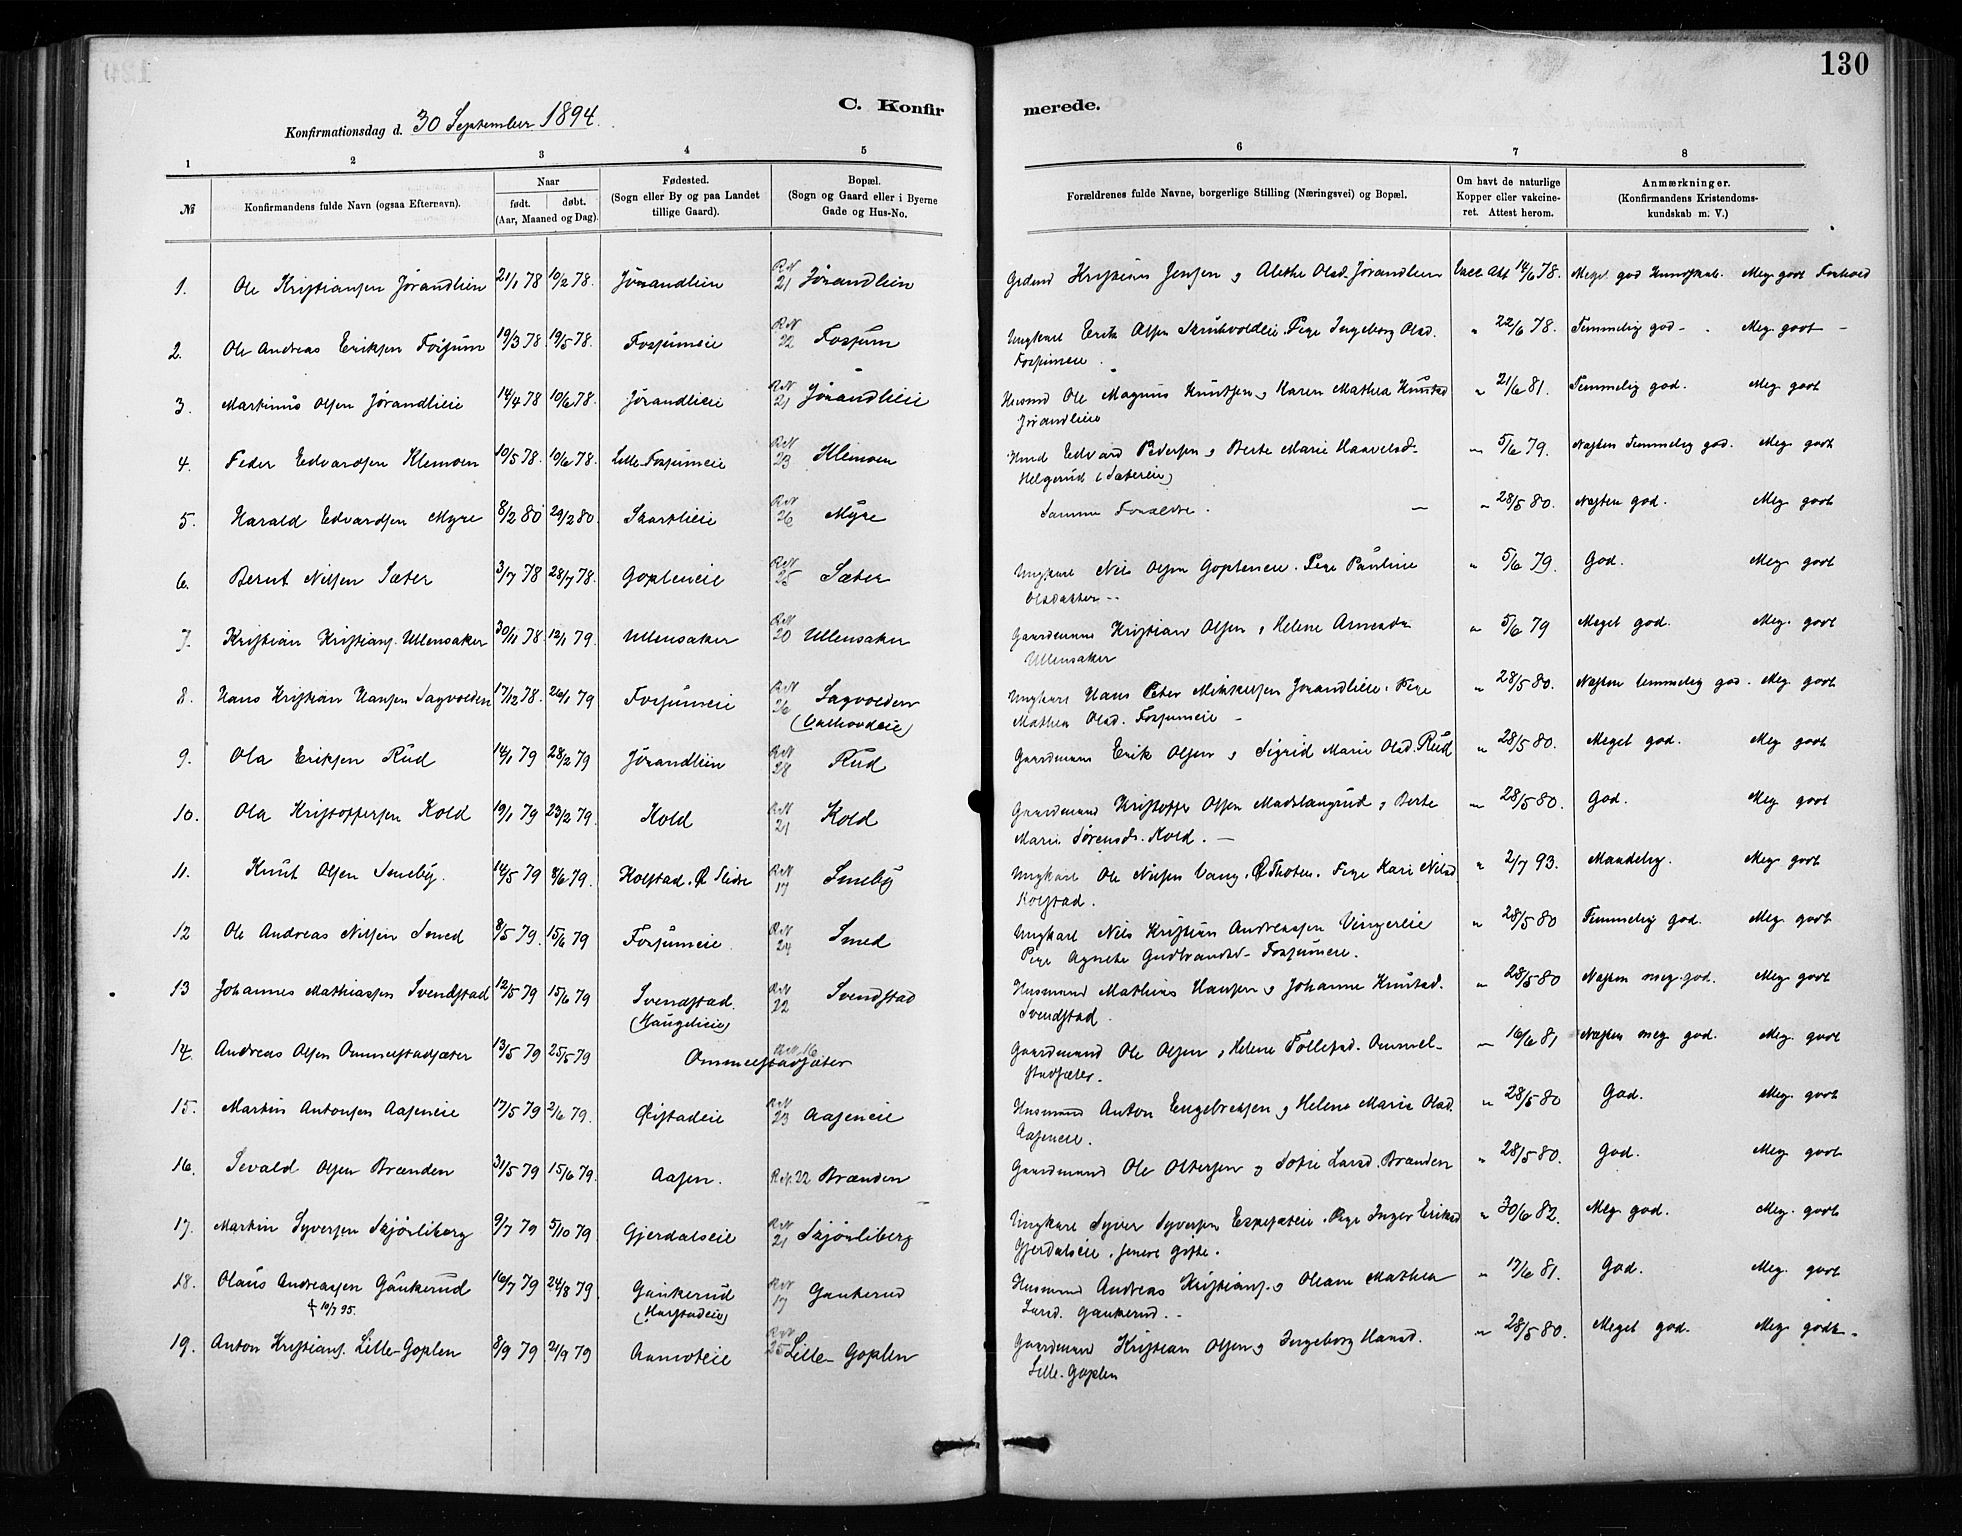 130
C. Konfirmerede.
Konfirmationsdag d. 30 September 1894.
1 2 3 4 5 6 7 8
№ Konfirmandens fulde Navn (ogsaa Efternavn). Naar født. døbt. (Aar, Maaned og Dag). Fødested. (Sogn eller By og paa Landet tillige Gaard). Bopæl. (Sogn og Gaard eller i Byerne Gade og Hus-No. Forældrenes fulde Navne, borgerlige Stilling (Næringsvei) og Bopæl. Om havt de naturlige Kopper eller vakcineret. Attest herom. Anmærkninger. (Konfirmandens Kristendomskundskab m. V.)
1. Ole Kristiansen Jørandlien 21/1 78 10/2 78. Jørandlien RN 21 Jørandlien Grdmd Kristian Jensen og Alethe Olsd. Jørandlien Vacc Att 14/6 78. Meget god Kundskab. Meg. godt Forhold
2. Ole Andreas Eriksen Fosjum 19/3 78 19/5 78. Fosjumeie RN 22 Fosjum Ungkarl Erik Olsen Skrukvoldeie. Pige Ingeborg Olsd. " 22/6 78. Temmelig god - Meg. godt -
Fosjumeie.
3. Martinus Olsen Jørandlieie 14/4 78 10/6 78. Jørandlieie RN 21 Jørandlieie Husmd Ole Magnus Knutsen og Karen Mathea Knutsd " 21/6 81. Temmelig god. Meg. godt
Jørandlieie
4. Peder Edvardsen Klemoen 10/5 78. 10/6 78. Lille-Fosjumeie RN 23 Klemoen Husmd Edvard Pedersen og Berte Marie Haavelsd. " 5/6 79. Næsten Temmelig god. Meg. godt
Helgerud (Sætereie)
5. Harald Edvardsen Myre 8/2 80 29/2 80. Skartlieie RN 26 Myre Samme Forældre. — " 28/5 80. Næsten god. Meg. godt
6. Bernt Nilsen Sæter 3/7 78 28/7 78. Gopleneie RN 25 Sæter Ungkarl Nils Olsen Gopleneie. Pige Pauline " 5/6 79. God. Meg. godt
Olsdatter --
7. Kristian Kristians. Ullensaker 30/11 78 12/1 79. Ullensaker RN 20 Ullensaker Gaardmand Kristian Olsen og Helene Arnesdr. " 5/6 79 Meget god. Meg. godt
Ullensaker
8. Hans Kristian Hansen Sagvolden 17/12 78. 26/1 79 Fosjumeie RN 26 Sagvolden Ungkarl Hans Peter Mikkelsen Jørandlieie. Pige " 28/5 80. Næsten temmelig god. Meg. godt
Mathea Olsd. Fosjumeie -
9. Ola Eriksen Rud 14/1 79 28/2 79 Jørandlien RN 28 Rud Gaardmand Erik Olsen og Sigrid Marie Olsd. Rud " 28/5 80. Meget god. Meg godt
10. Ola Kristoffersen Kold 19/1 79 23/2 79. Kold RN 21 Kold Gaardmand Kristoffer Olsen Madslangrud og Berte " 28/5 80. God. Meg godt
Marie Sørensd. Kold. —
11. Knut Olsen Smeby. 14/5 79 8/6 79. Kolstad. Ø Slidre RN 17 Smeby Ungkarl Ole Nilsen Vang, Ø Thoten. Pige Kari Nilsd " 2/7 93. Maadelig. Meg. godt
Kolstad.
12 Ole Andreas Nilsen Smed 8/5 79. 15/6 79 Fosjumeie. RN 24 Smed Ungkarl Nils Kristian Andreassen Vingerlie " 28/5 80 Temmelig god. Meg. godt
Pige Agnethe Gudbrandsd. Fosjumeie.
13 Johannes Mathiassen Svendstad 12/5 79 15/6 79 Svendstad (Haugelieie) RN 22 Svendstad Husmand Mathias Hansen og Johanne Knutsd. " 28/5 80 Næsten meg. god. Meg. godt
Svendstad.
14. Andreas Olsen Ommelstadsæter 13/5 79 25/5 79 Ommelstadsæter RN 16 Gaardmand Ole Olsen og Helene Tollefsd. Ommel- " 16/6 81 Næsten meg. god. Meg. godt
stadsæter.
15. Martin Antonsen Aaseneie 17/5 79 2/6 79. Øistadeie RN 23 Aaseneie Husmand Anton Engebretsen og Helene Marie Olsd. " 28/5 80 God. Meg. godt
Aaseneie.
16. Sevald Olsen Brænden 31/5 79 15/6 79. Aasen. RN. 22 Brænden Gaardmand Ole Oltersen og Sofie Larsd. Brænden " 28/5 80. God. Meg. godt
17. Martin Syversen Skjønliberg 9/7 79 5/10 79 Gjerdalseie RN 21 Skjønliberg Ungkarl Syver Syversen Espesæteie. Pige Inger Eriksd " 30/6 82. Meg. god. Meg. godt
Gjerdalseie. senere gifte.
18. Olaus Andreassen Gaukerud 16/7 79 24/8 79. Gaukerud (Harstadeie) RN 17 Gaukerud Husmand Andreas Kristians. og Oleane Mathea " 17/6 81. God. Meg. godt
† 10/7 95. Larsd. Gaukerud. -
19. Anton Kristians. Lille-Goplen 8/9 79 21/9 79 Aamoteie RN 25 Lille-Goplen Gaardmand Kristian Olsen og Ingeborg Hansd. " 28/5 80. Meget god. Meg. godt.
Lille-Goplen